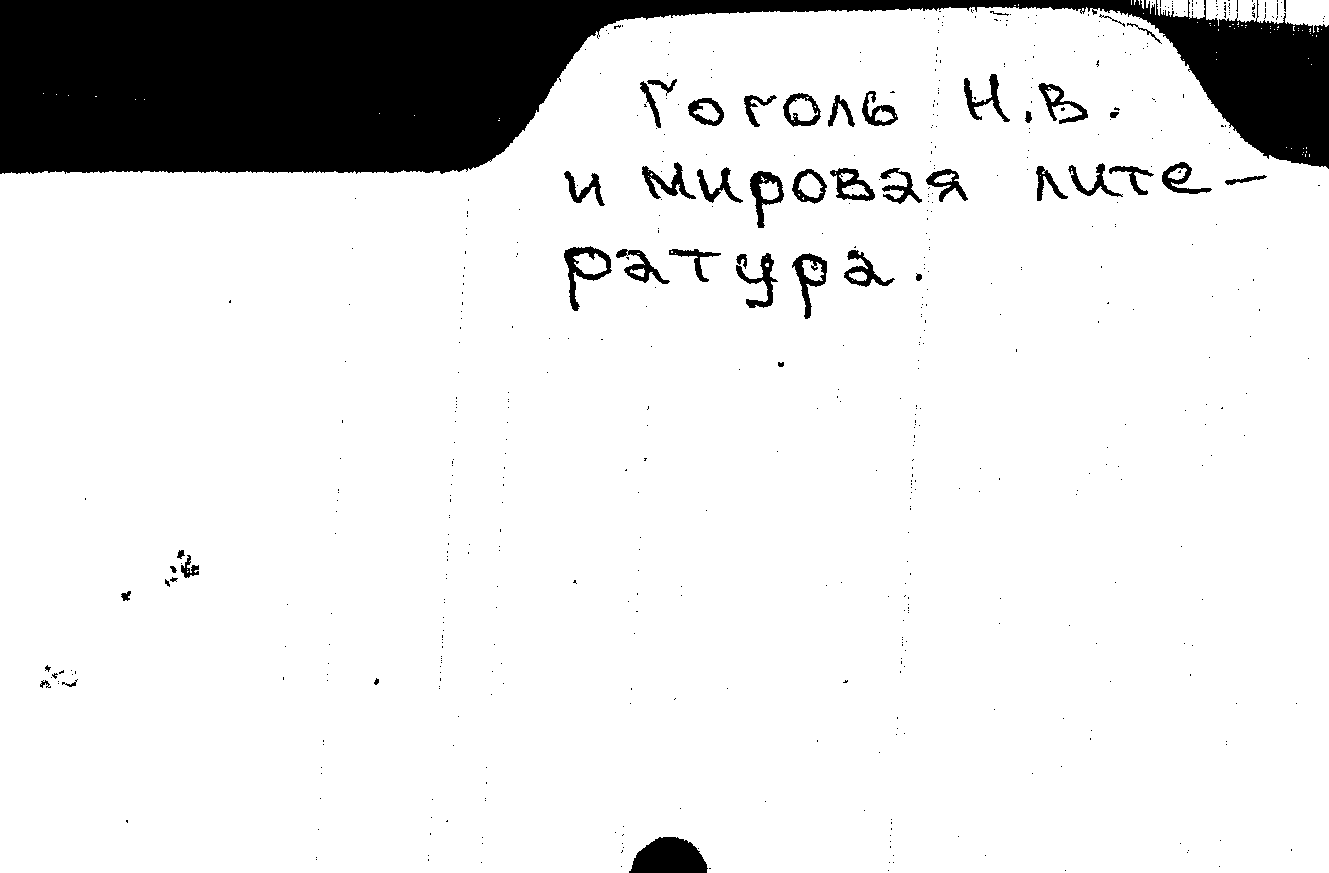 Гоголь Н.В.
и мировая лите-
ратура.